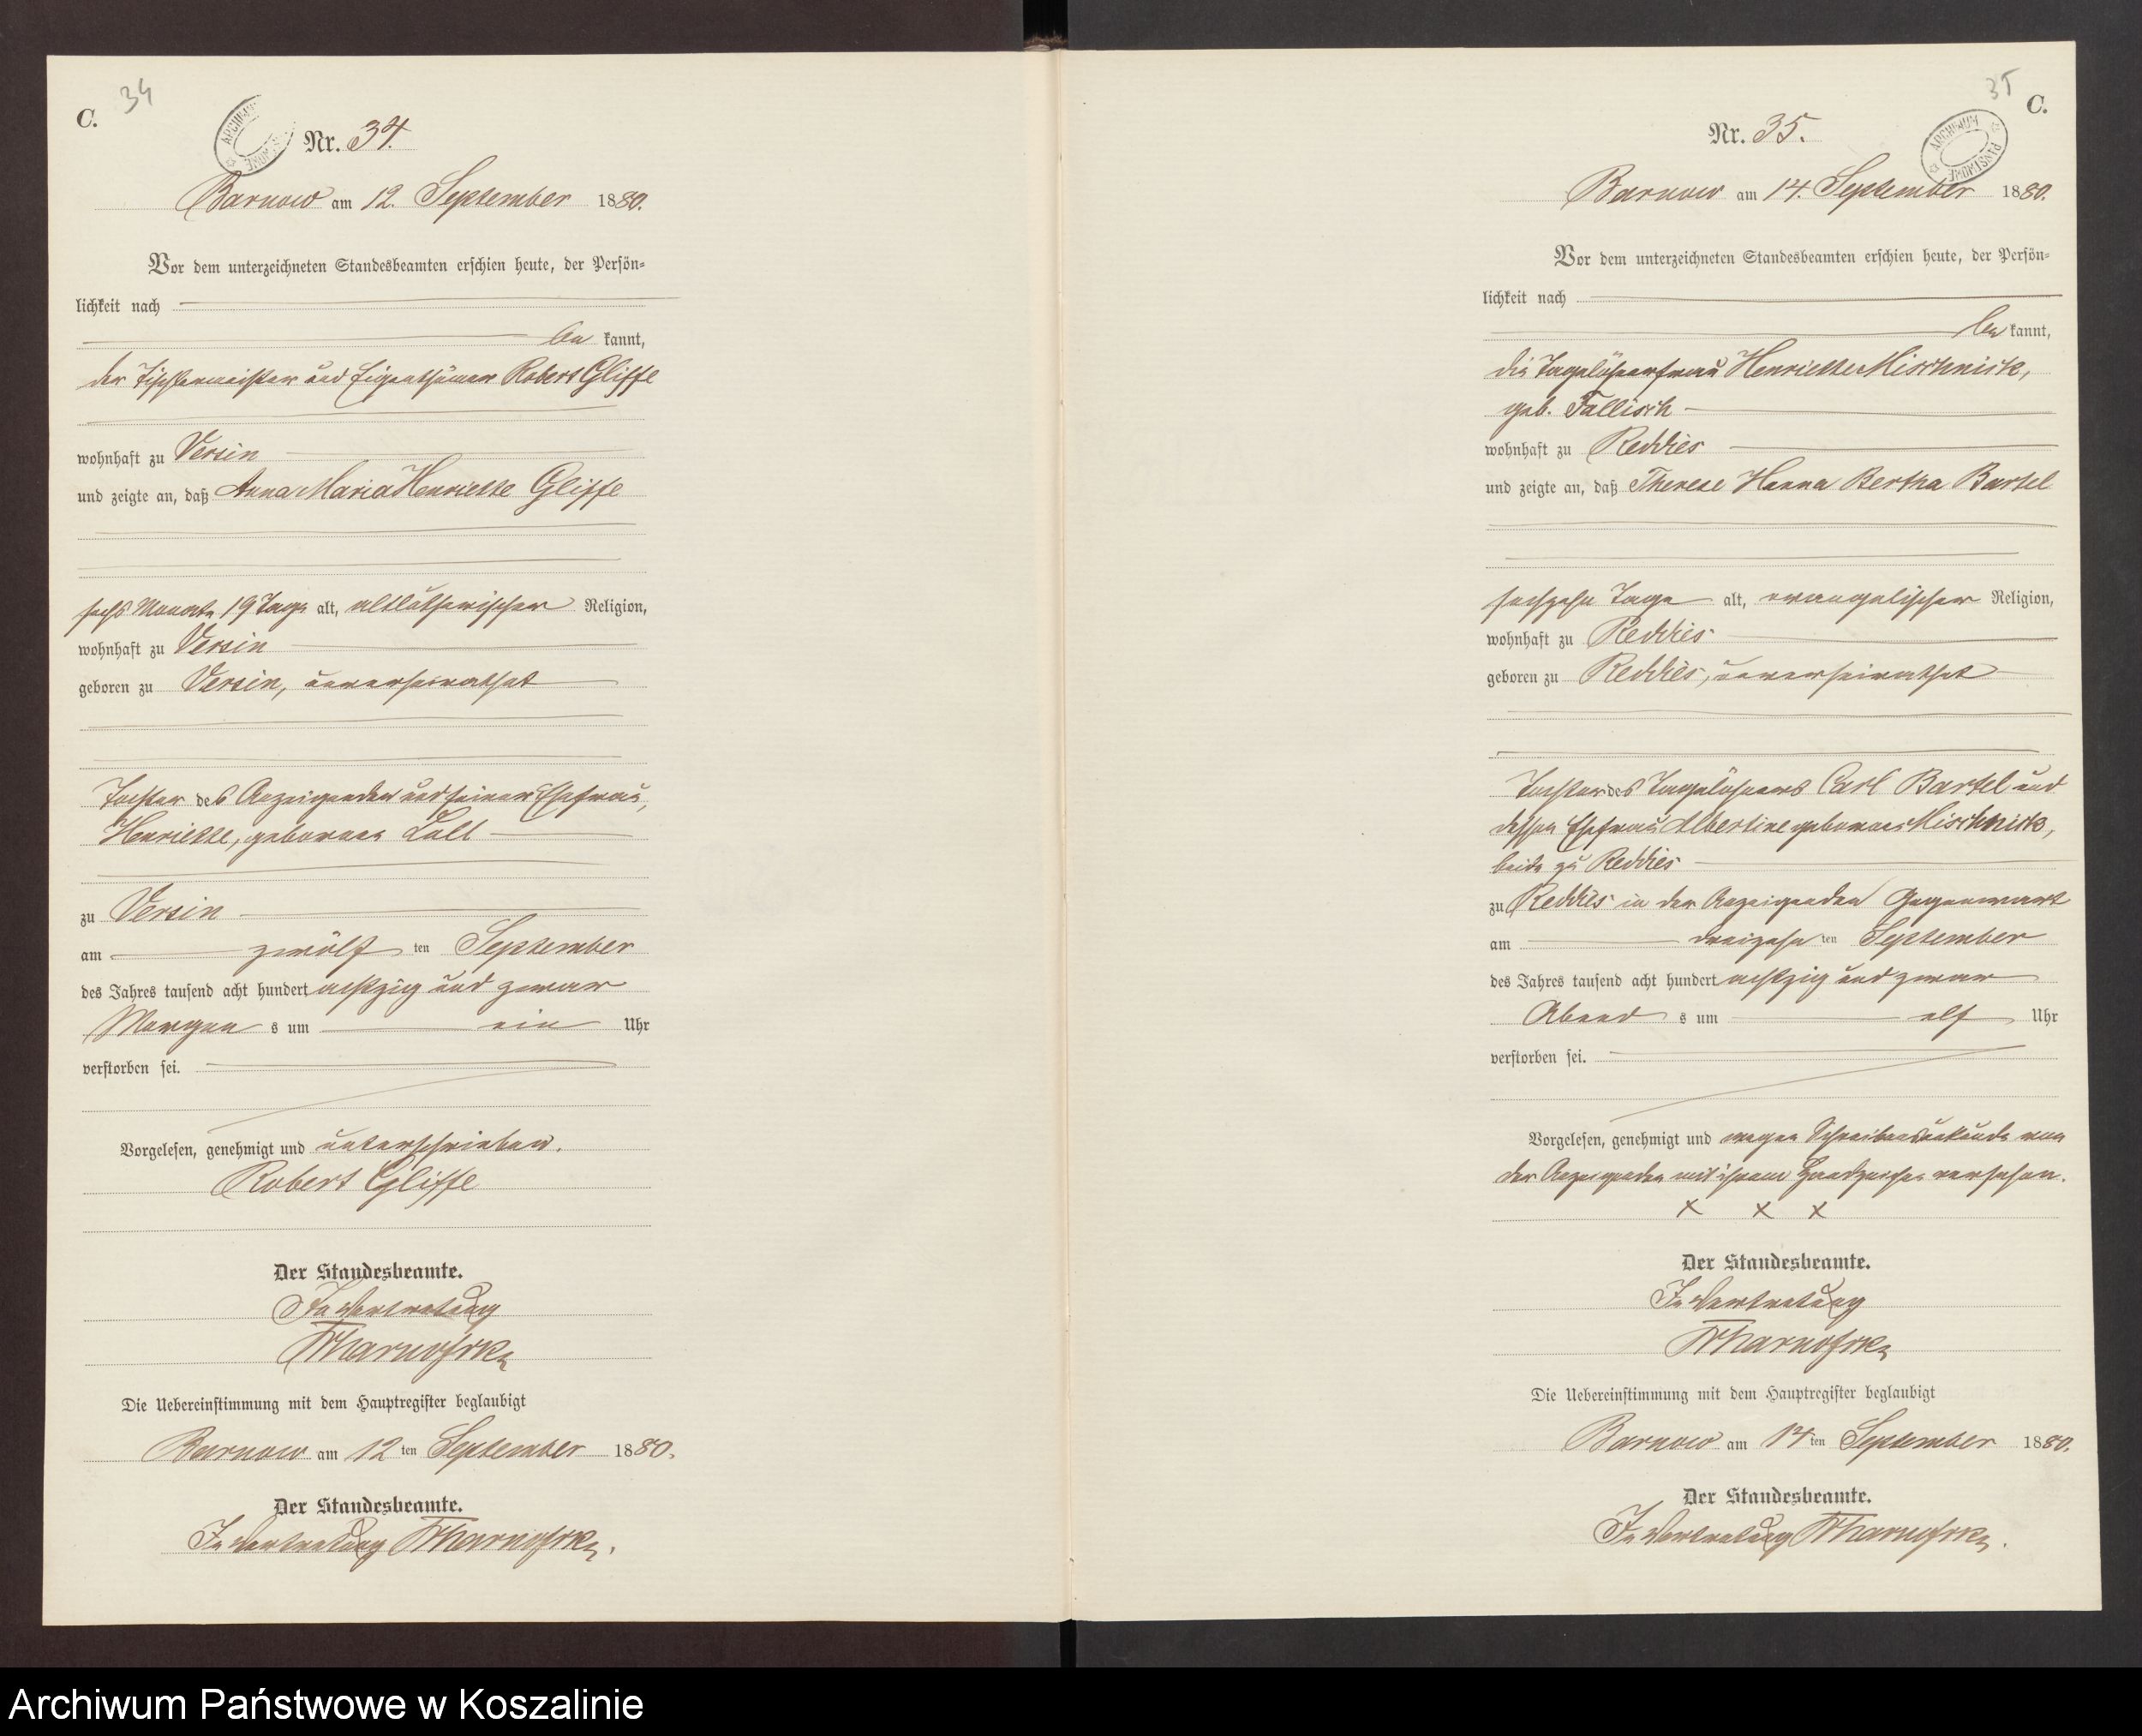 34
C.
ARCHIWUM PAŃSTWOWE
Nr. 34.
Barnow am 12. September 1880.
Vor dem unterzeichneten Standesbeamten erschien heute, der Persön-
lichkeit nach
be kannt,
der Tischlermeister und Eigenthümer Robert Gliffe
wohnhaft zu Versin
und zeigte an, daß Anna Maria Henriette Gliffe
sechs Monate 19 Tage alt, altlutherischer Religion,
wohnhaft zu Versin
geboren zu Versin, unverheirathet
Tochter des Anzeigenden und seiner Ehefrau,
Henriette, geborenen Lall
zu Versin
am zwölf ten September
des Jahres tausend acht hundert achtzig und zwar
Morgen s um ein Uhr
verstorben sei.
Vorgelesen, genehmigt und unterschrieben.
Robert Gliffe
Der Standesbeamte.
In Vertretung
Die Uebereinstimmung mit dem Hauptregister beglaubigt
Barnow am 12 ten September 1880.
Der Standesbeamte.
In Vertretung
35
C.
ARCHIWUM PAŃSTWOWE
Nr. 35.
Barnow am 14. September 1880.
Vor dem unterzeichneten Standesbeamten erschien heute, der Persön-
lichkeit nach
be kannt,
die Tagelöhnerfrau Henriette Mischnick,
geb. Fallisch
wohnhaft zu Reddies
und zeigte an, daß Therese Hanna Bertha Bartel
sechzehn Tage alt, evangelischer Religion,
wohnhaft zu Reddies
geboren zu Reddies, unverheirathet
Tochter des Tagelöhners Carl Bartel und
dessen Ehefrau Albertine geborenen Mischnick,
beide zu Reddies
zu Reddies in der Anzeigenden Gegenwart
am dreizehn ten September
des Jahres tausend acht hundert achtzig und zwar
Abend s um elf Uhr
verstorben sei.
Vorgelesen, genehmigt und wegen Schreibensunkunde von
der Anzeigenden mit ihrem Handzeichen versehen.
x x x
Der Standesbeamte.
In Vertretung
Die Uebereinstimmung mit dem Hauptregister beglaubigt
Barnow am 14 ten September 1880.
Der Standesbeamte.
In Vertretung
Archiwum Państwowe w Koszalinie